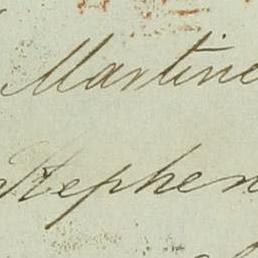 Martine
Stephen